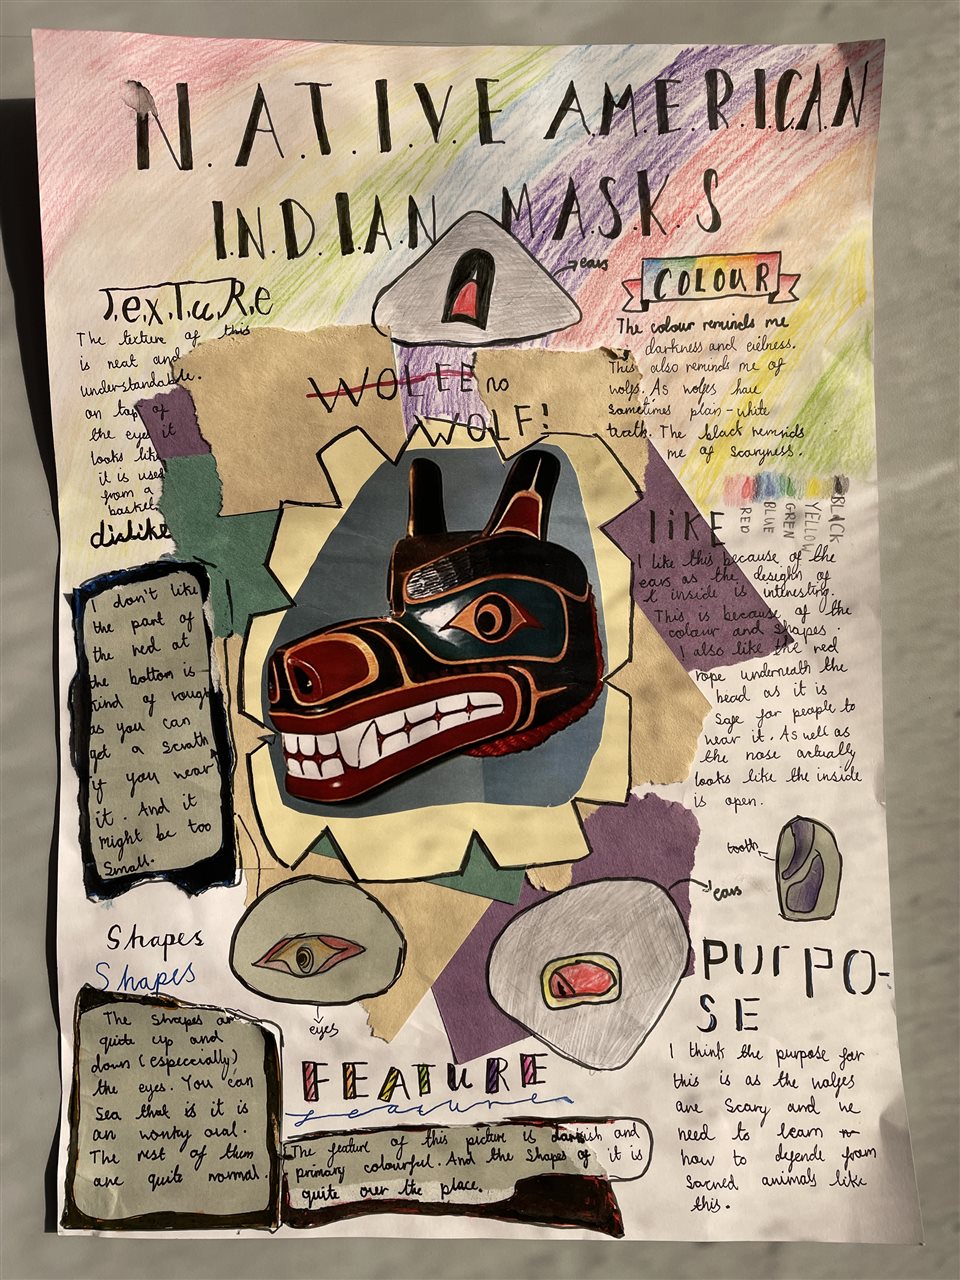 N.A.T.I.V.E A.M.E.R.I.C.A.N
I.N.D.I.A.N M.A.S.K.S
T.e.x.T.u.R.e
The texture of this
is neat and
understandable.
on top of
the eyes it
looks like
it is used
from a
basket
dislike
I don't like
the part of
the red at
the bottom is
kind of rough
as you can
get a Scrath
if you wear
it. And it
might be too
Small.
Shapes
Shapes
The Shapes are
quite up and
down (especcially)
the eyes. You can
Sea that is it is
an wonky oval.
The rest of them
are quite normal.
ears
WOLEE no
WOLF!
eyes
FEATURE
feature
The feature of this picture is darkish and
primary colourful. And the Shapes of it is
quite over the place.
COLOUR
The colour reminds me
darkness and
This also reminds me of
wolfs. As wolfes have
Sometimes plain-white
teath. The black reminds
me of scaryness.
RED
BLUE
GREEN
YELLOW
BLACK
liKE
I like this because of the
ears as the design of
it inside is interesting.
This is because of the
colour and shapes.
I also like the red
rope underneath the
head as it is
Safe for people to
wear it. As well as
the nose actually
looks like the inside
is open.
tooth
ears
PURPO-
SE
I think the purpose for
this is as the wolfes
are Scary and we
need to learn
how to defende from
Sacred animals like
this.